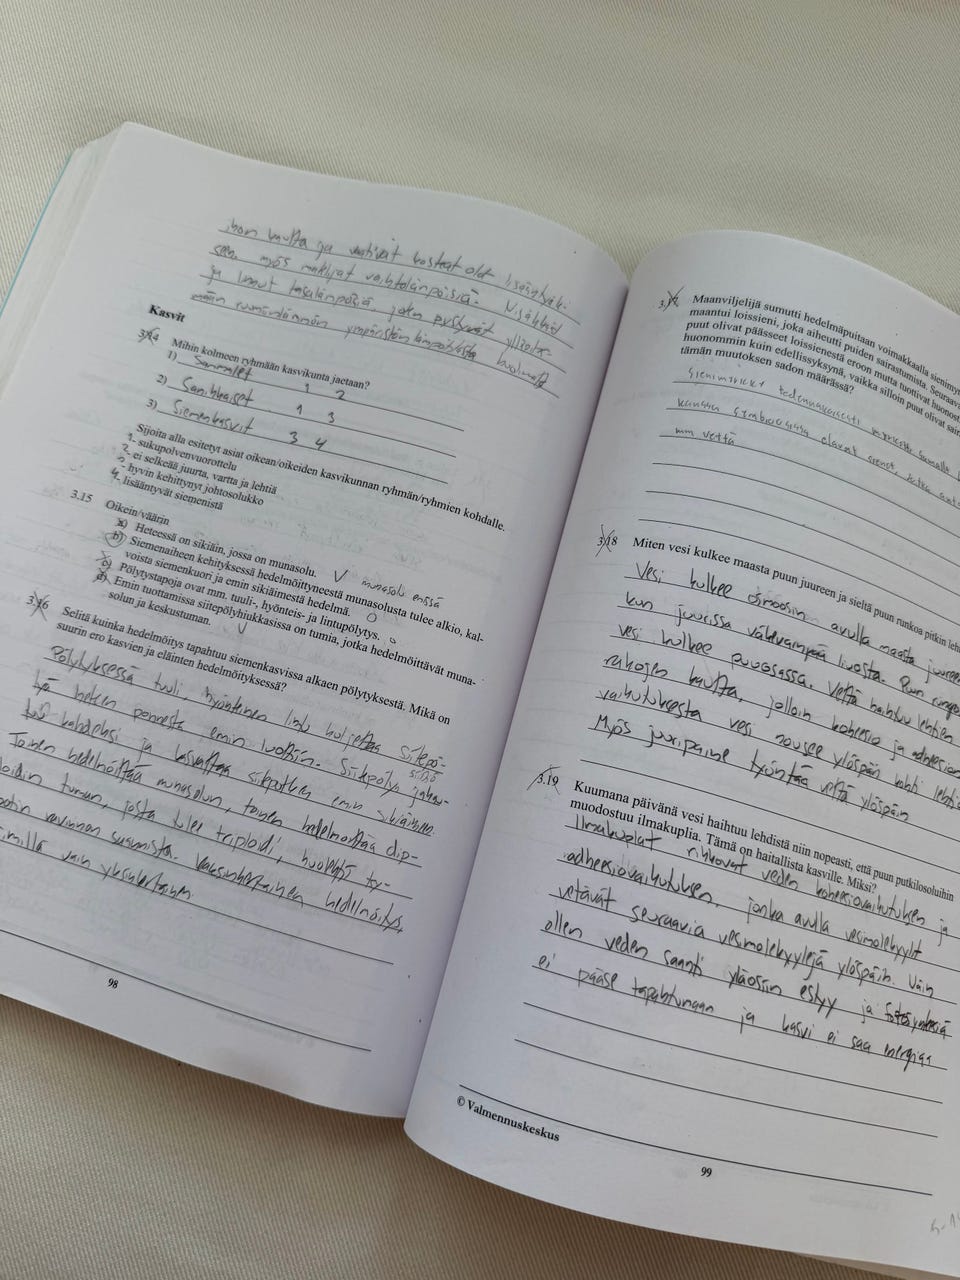 ihon kautta ja vaativat kosteat olot lisääntyäk-
seen, myös matelijat vaihtolämpöisiä. Nisäkkäät
ja linnut tasalämpöisiä, joten pystyvät ylläpitä-
mään ruumiinlämmön ympäristön lämpötilasta huolimatta
Kasvit
3.14 Mihin kolmeen ryhmään kasvikunta jaetaan?
1) Sammalet 1 2
2) Sanikkaiset 1 3
3) Siemenkasvit 3 4
Sijoita alla esitetyt asiat oikean/oikeiden kasvikunnan ryhmän/ryhmien kohdalle.
1 - sukupolvenvuorottelu
2 - ei selkeää juurta, vartta ja lehtiä
3 - hyvin kehittynyt johtosolukko
4 - lisääntyvät siemenistä
3.15 Oikein/väärin
a) Heteessä on sikiäin, jossa on munasolu. V munasolu emissä
b) Siemenaiheen kehityksessä hedelmöittyneestä munasolusta tulee alkio, kal-
voista siemenkuori ja emin sikiäimestä hedelmä. O
c) Pölytystapoja ovat mm. tuuli-, hyönteis- ja lintupölytys. O
d) Emin tuottamissa siitepölyhiukkasissa on tumia, jotka hedelmöittävät muna-
solun ja keskustuman. V
3.16 Selitä kuinka hedelmöitys tapahtuu siemenkasvissa alkaen pölytyksestä. Mikä on
suurin ero kasvien ja eläinten hedelmöityksessä?
Pölytyksessä tuuli hyönteinen lintu kuljettaa siitepö-
lyä heteen ponnesta emin luottiin. Siitepölyn siitiö jakau-
tuu kahdeksi ja kasvattaa siiteputken emin sikiäimeen.
Toinen hedelmöittää munasolun, toinen hedelmöittää dip-
loidin tuman, josta tulee triploidi, huolehtii
ravinnon saannista. Kaksinkertainen hedelmöitys,
eläimillä vain yksinkertainen.
98
3.17 Maanviljelijä sumutti hedelmäpuitaan voimakkaalla sienimy
maantui loissieni, joka aiheutti puiden sairastumista. Seuraava
puut olivat päässeet loissienestä eroon mutta tuottivat huonost
huonommin kuin edellissyksynä, vaikka silloin puut olivat sair
tämän muutoksen sadon määrässä?
Sienimyrkky todennäköisesti myrkytti samalla
kanssa symbioosissa elävät sienet, jotka
mm vettä
3.18 Miten vesi kulkee maasta puun juureen ja sieltä puun runkoa pitkin leh
Vesi kulkee osmoosin avulla maasta juureen
kun juurissa väkevämpää liuosta. Puun rungo
vesi kulkee puuosassa. Vettä haihtuu lehtien
rakojen kautta, jolloin koheesio ja adheesion
vaikutuksesta vesi nousee ylöspäin kohti lehti
Myös juuripaine työntää vettä ylöspäin
3.19 Kuumana päivänä vesi haihtuu lehdistä niin nopeasti, että puun putkilosoluihin
muodostuu ilmakuplia. Tämä on haitallista kasville. Miksi?
Ilmakuplat rikkovat veden koheesiovaikutuksen ja
adheesiovaikutuksen, jonka avulla vesimolekyylit
vetävät seuraavia vesimolekyylejä ylöspäin. Näin
ollen veden saanti yläosiin estyy ja fotosynteesiä
ei pääse tapahtumaan ja kasvi ei saa energiaa
© Valmennuskeskus
99